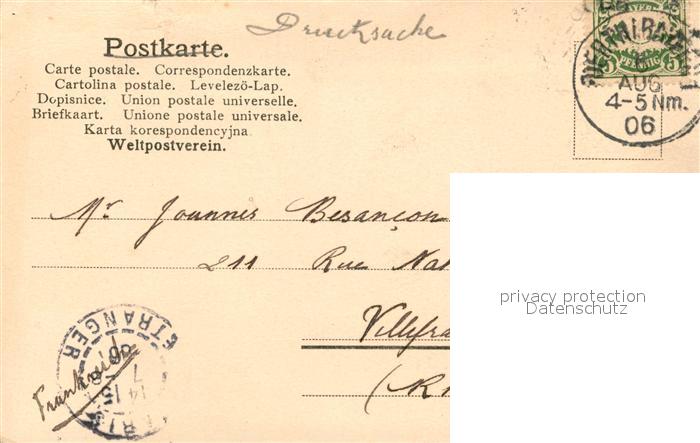 Drucksache
Postkarte.
Carte postale. Correspondenzkarte.
Cartolina postale. Levelező-Lap.
Dopisnice. Union postale universelle.
Briefkaart. Unione postale universale.
Karta korespondencyjna
Weltpostverein.
BAYERN
5 PFENNIG 5
AUG
4-5 Nm.
06
Mr. Joannès Besançon
211 Rue Nat
Villefra
(R
privacy protection
Datenschutz
ETRANGER
Frankreich